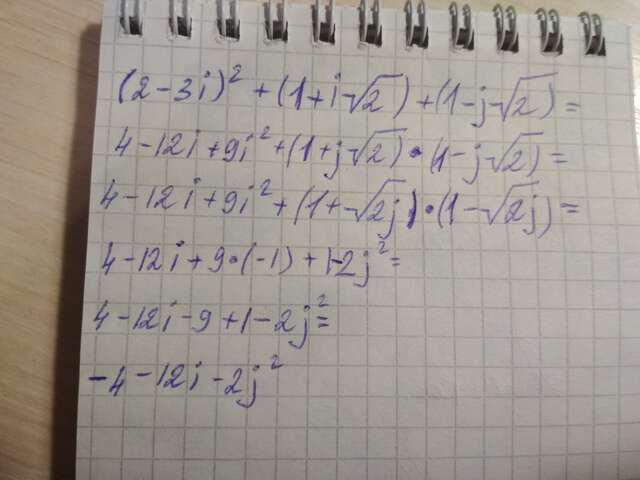 (2-3i)² + (1+i√2) + (1-j√2) =
4-12i+9i² + (1+j√2) • (1-j√2) =
4-12i+9i² + (1+√2j) • (1-√2j) =
4-12i+9•(-1) + 1-2j² =
4-12i-9+1-2j² =
-4-12i-2j²